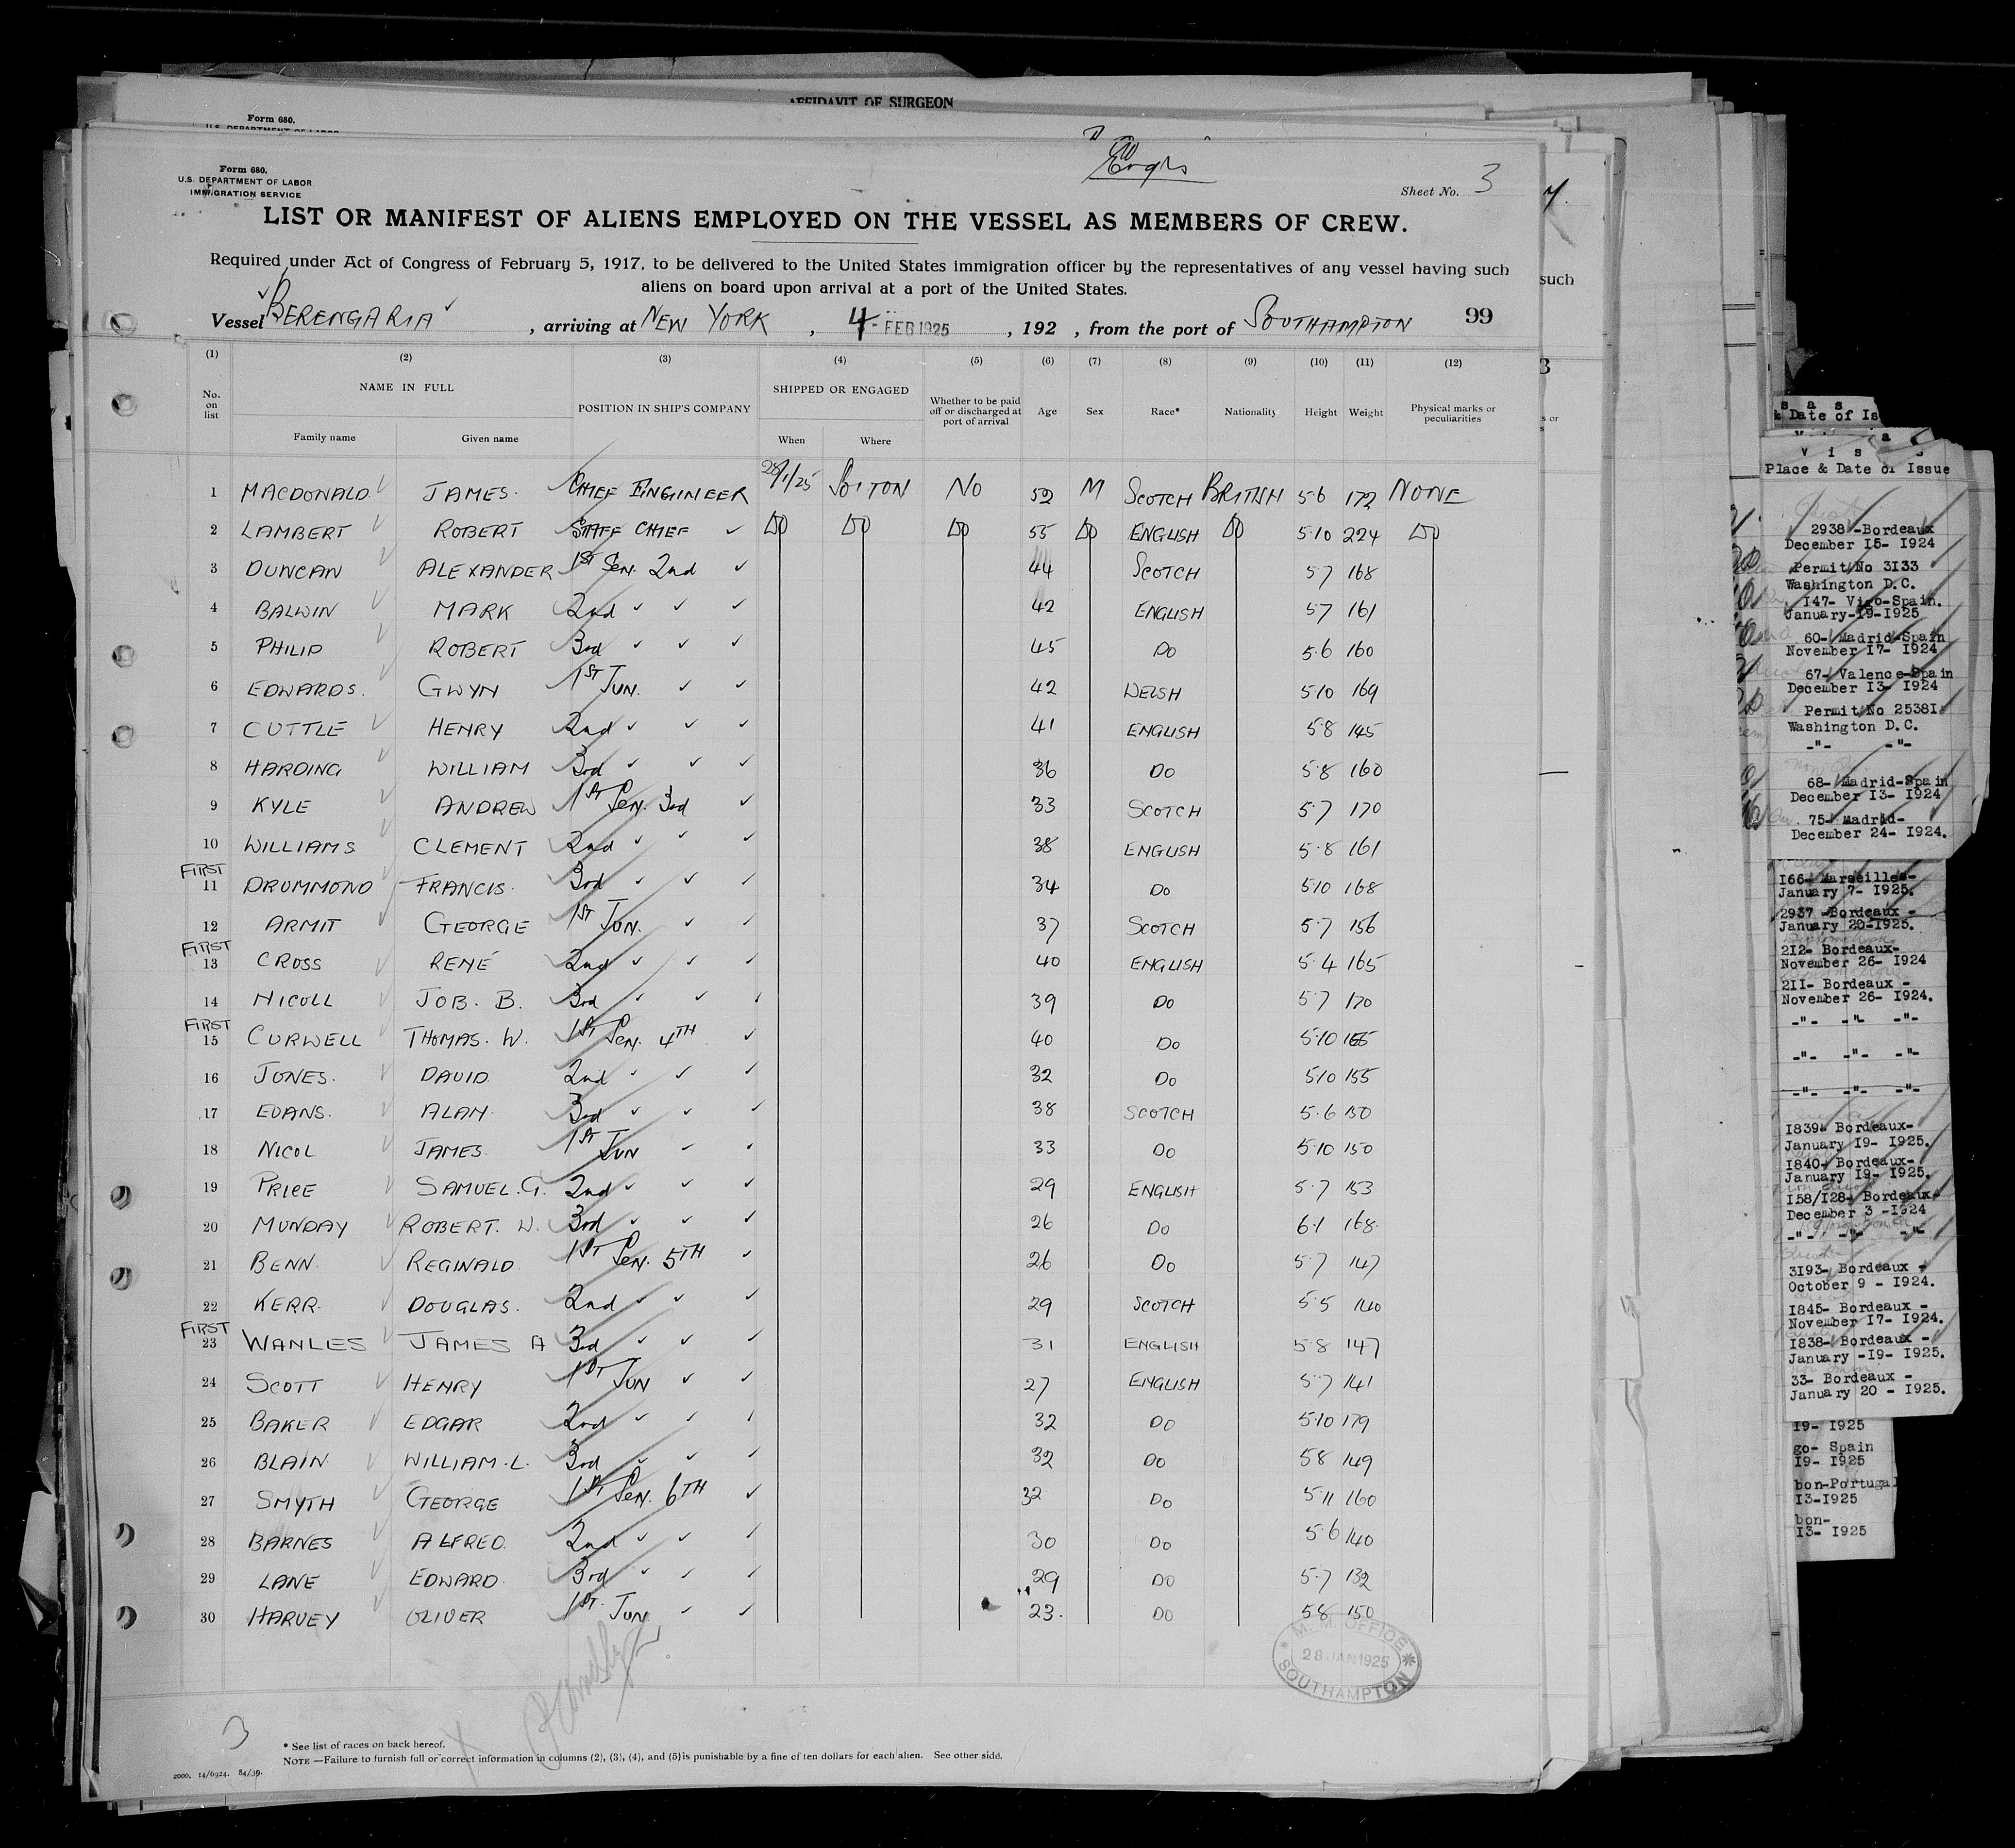 AFFIDAVIT OF SURGEON
Form 680.
U.S. DEPARTMENT OF LABOR
Form 680.
U.S. DEPARTMENT OF LABOR
IMMIGRATION SERVICE
Engrs
Sheet No. 3
LIST OR MANIFEST OF ALIENS EMPLOYED ON THE VESSEL AS MEMBERS OF CREW.
Required under Act of Congress of February 5, 1917, to be delivered to the United States immigration officer by the representatives of any vessel having such
aliens on board upon arrival at a port of the United States.
Vessel BERENGARIA, arriving at NEW YORK, 4 - FEB 1925, 192 , from the port of SOUTHAMPTON 99
(1) (2) (3) (4) (5) (6) (7) (8) (9) (10) (11) (12)
No. on list NAME IN FULL POSITION IN SHIP'S COMPANY SHIPPED OR ENGAGED Whether to be paid off or discharged at port of arrival Age Sex Race* Nationality Height Weight Physical marks or peculiarities
Family name Given name When Where
1 MACDONALD JAMES. CHIEF ENGINEER 28/1/25 SO'TON NO 52 M SCOTCH BRITISH 5·6 172 NONE
2 LAMBERT ROBERT STAFF CHIEF ✓ DO DO DO 55 DO ENGLISH DO 5·10 224 DO
3 DUNCAN ALEXANDER 1ST Sen. 2nd ✓ 44 SCOTCH 5·7 168
4 BALWIN MARK 2nd ✓ ✓ ✓ 42 ENGLISH 5·7 161
5 PHILIP ROBERT 3rd ✓ ✓ ✓ 45 DO 5·6 160
6 EDWARDS. GWYN 1ST JUN. ✓ ✓ 42 WELSH 5·10 169
7 CUTTLE HENRY 2nd ✓ ✓ ✓ 41 ENGLISH 5·8 145
8 HARDING WILLIAM 3rd ✓ ✓ ✓ 36 DO 5·8 160
9 KYLE ANDREW 1ST Sen. 3rd ✓ 33 SCOTCH 5·7 170
10 WILLIAMS CLEMENT 2nd ✓ ✓ ✓ 38 ENGLISH 5·8 161
FIRST
11 DRUMMOND FRANCIS. 3rd ✓ ✓ ✓ 34 DO 5·10 168
12 ARMIT GEORGE 1ST JUN. ✓ ✓ 37 SCOTCH 5·7 156
FIRST
13 CROSS RENÉ 2nd ✓ ✓ ✓ 40 ENGLISH 5·4 165
14 NICOLL JOB. B. 3rd ✓ ✓ ✓ 39 DO 5·7 170
FIRST
15 CURWELL THOMAS. W. 1ST Sen. 4TH ✓ 40 DO 5·10
16 JONES. DAVID 2nd ✓ ✓ ✓ 32 DO 5·10 155
17 EVANS. ALAN. 3rd ✓ ✓ ✓ 38 SCOTCH 5·6
18 NICOL JAMES. 1ST JUN ✓ ✓ 33 DO 5·10 150
19 PRICE SAMUEL. G. 2nd ✓ ✓ ✓ 29 ENGLISH 5·7 153
20 MUNDAY ROBERT. W. 3rd ✓ ✓ ✓ 26 DO 6·1 168.
21 BENN. REGINALD. 1ST Sen. 5TH ✓ 26 DO 5·7 147
22 KERR. DOUGLAS. 2nd ✓ ✓ ✓ 29 SCOTCH 5·5 140
FIRST
23 WANLES JAMES A 3rd ✓ ✓ ✓ 31 ENGLISH 5·8 147
24 SCOTT HENRY 1ST JUN ✓ ✓ 27 ENGLISH 5·7 141
25 BAKER EDGAR 2nd ✓ ✓ ✓ 32 DO 5·10 179
26 BLAIN. WILLIAM. L. 3rd ✓ ✓ ✓ 32 DO 5·8 149
27 SMYTH GEORGE 1ST Sen. 6TH ✓ 32 DO 5·11 160
28 BARNES ALFRED. 2nd ✓ ✓ ✓ 30 DO 5·6 140
29 LANE EDWARD. 3rd ✓ ✓ ✓ 29 DO 5·7 132
30 HARVEY OLIVER 1ST. JUN ✓ ✓ 23. DO 5·8 150
M. M. OFFICE
28 JAN 1925
SOUTHAMPTON
3
* See list of races on back hereof.
NOTE —Failure to furnish full or correct information in columns (2), (3), (4), and (5) is punishable by a fine of ten dollars for each alien. See other side.
2000. 14/6924. 84/39.
such
s a s
& Date of Is
V i s
Place & Date of Issue
2938 -Bordeaux
December 15- 1924
Permit No 3133
Washington D.C.
147- Vigo-Spain.
January-19-1925
60- Madrid-Spain
November 17- 1924
67- Valence-Spain
December 13- 1924
Permit No 25381
Washington D.C.
-"- -"-
68- Madrid-Spain
December 13- 1924
75- Madrid-
December 24- 1924.
166- Marseilles-
January 7- 1925.
2937 -Bordeaux -
January 20-1925.
212- Bordeaux-
November 26- 1924
211- Bordeaux -
November 26- 1924.
-"- -"- -"-
-"- -"- -"-
-"- -"- -"-
1839- Bordeaux-
January 19- 1925.
1840- Bordeaux-
January 19- 1925.
158/128- Bordeaux-
December 3 -1924
-"- -"- -"-
3193- Bordeaux -
October 9 - 1924.
1845- Bordeaux -
November 17- 1924.
1838- Bordeaux -
January -19- 1925.
33- Bordeaux -
January 20 - 1925.
19- 1925
go- Spain
19- 1925
bon-Portugal
13-1925
bon-
13- 1925